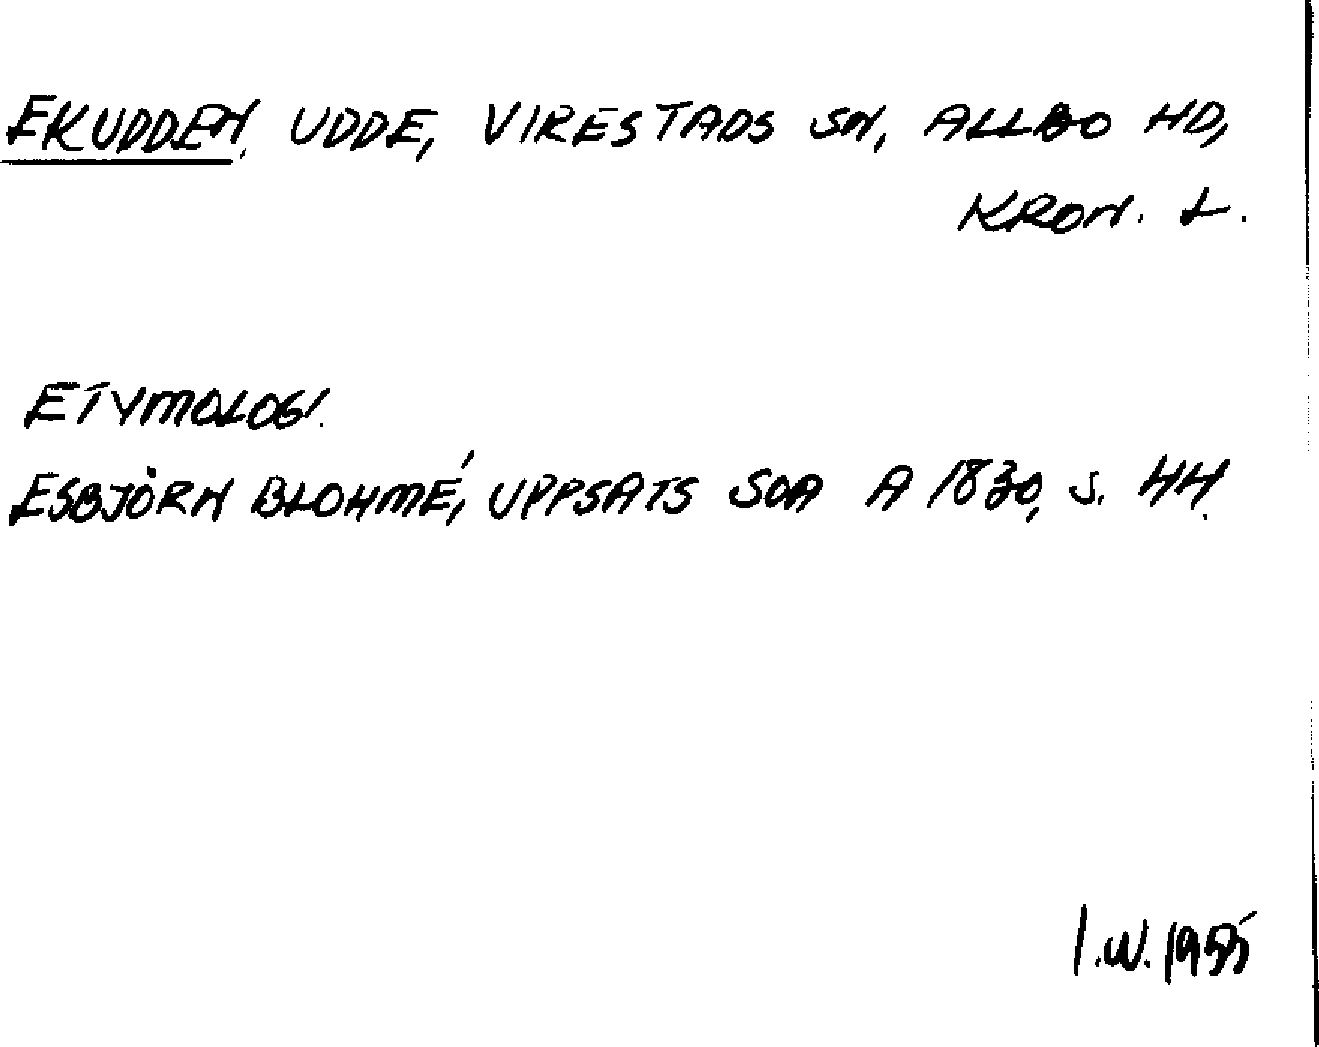 EKUDDEN, UDDE, VIRESTADS SN, ALLBO HD,
KRON. L.
ETYMOLOGI.
ESBJÖRN BLOHMÉ, UPPSATS SOA A 1830, S. 44.
I.W. 1955